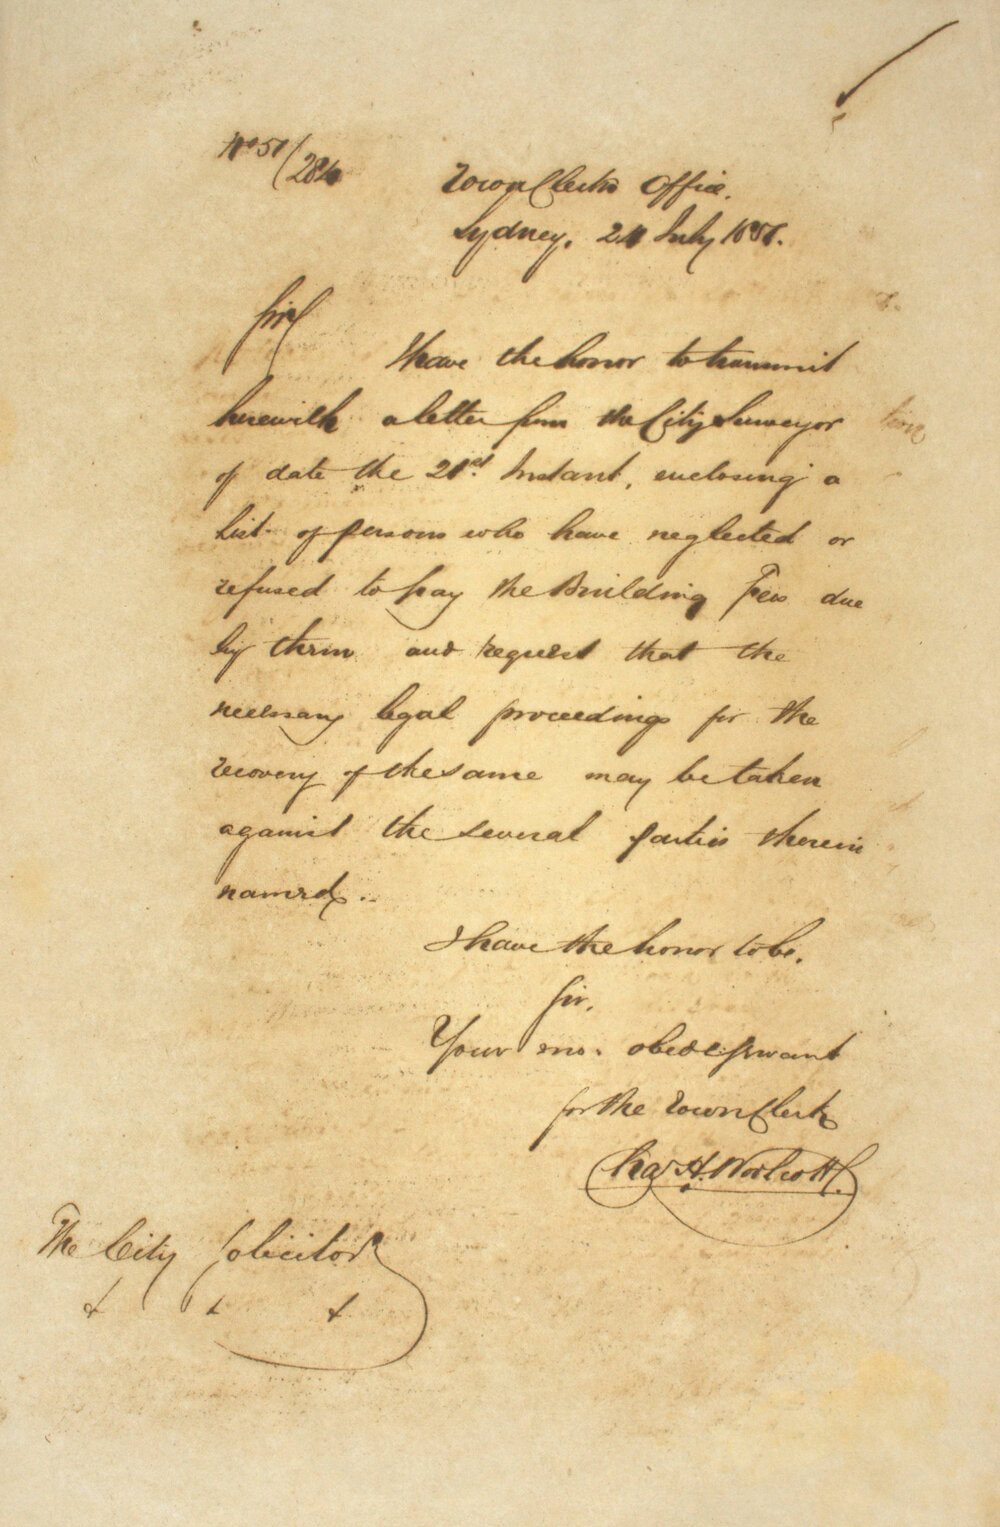 No 57/284
Town Clerk's Office.
Sydney, 24 July 1857.
Sir,
I have the honor to transmit
herewith a letter from the City Surveyor
of date the 21st Instant, enclosing a
list of persons who have neglected or
refused to pay the Building Fees due
by them and request that the
necessary legal proceedings for the
recovery of the same may be taken
against the several parties therein
named.
I have the honor to be.
Sir.
Your mo. obedt. Servant
for the Town Clerk
Chas H. Woolcott
The City Solicitor
&c &c &c